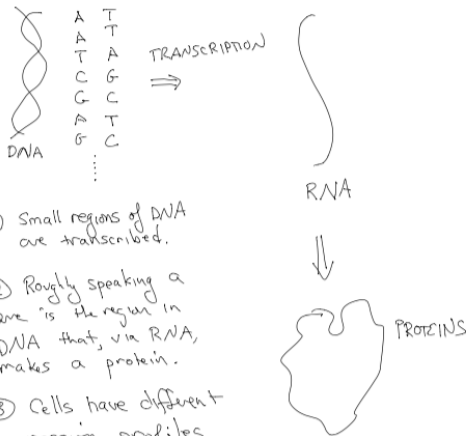 A T
A T
T A
C G
G C
A T
G C
DNA
TRANSCRIPTION
RNA
PROTEINS
Small regions of DNA
are transcribed.
② Roughly speaking a
is the region in
DNA that, via RNA,
makes a protein.
③ Cells have different
profiles